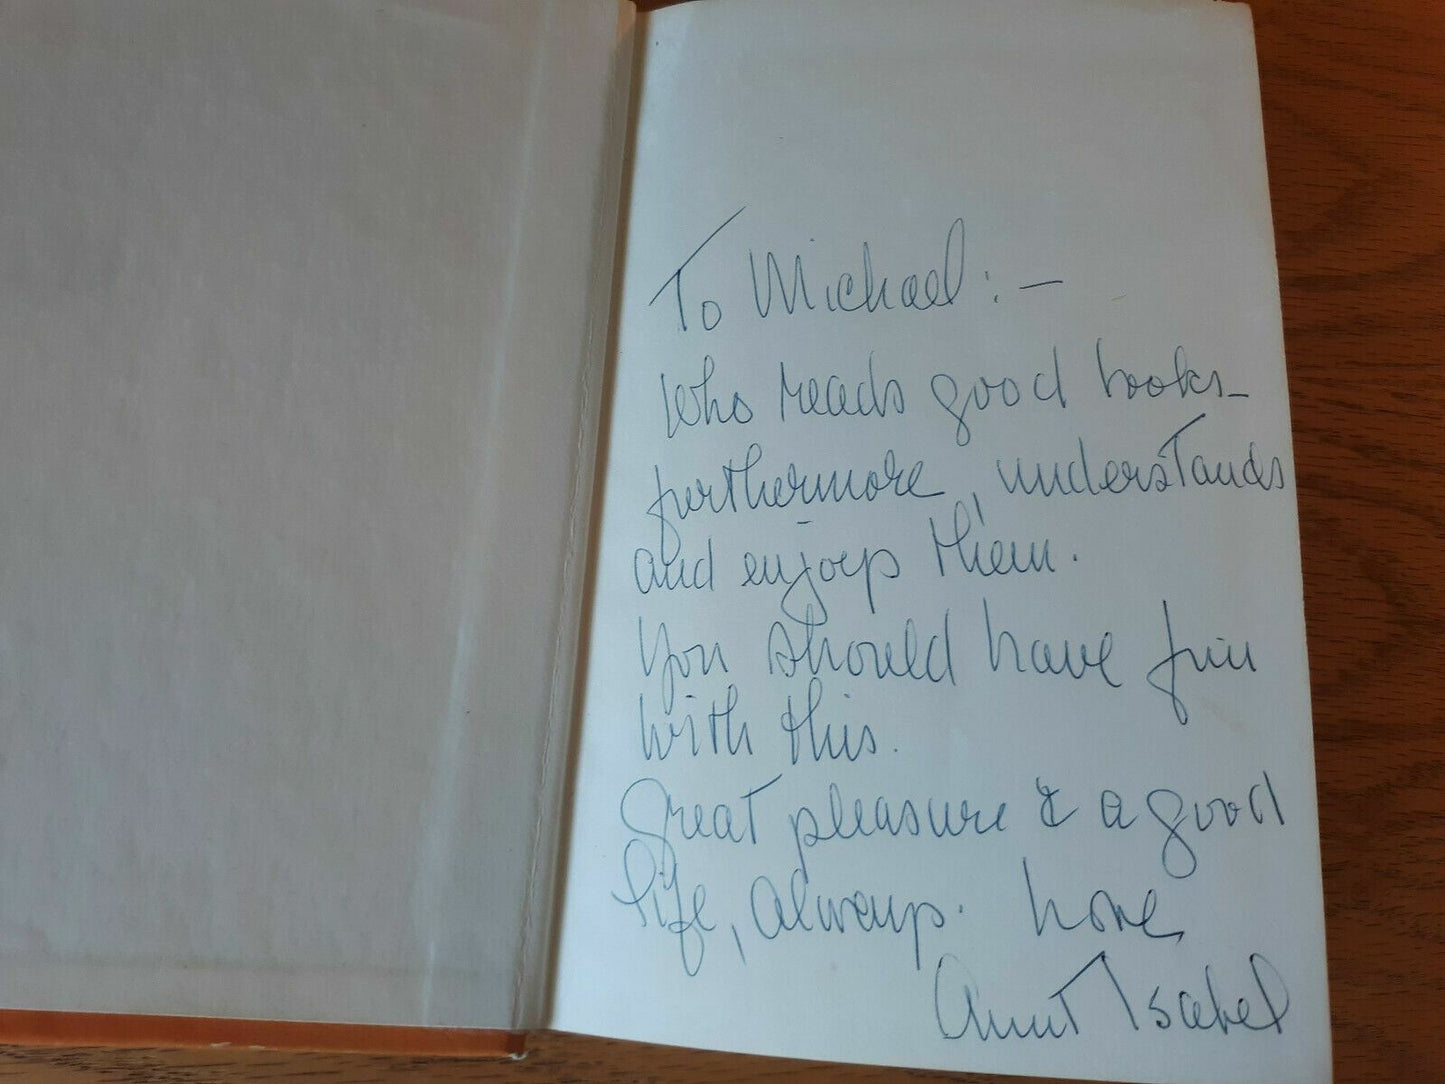 To Michael :-
Who reads good books-
furthermore, understands
and enjoys them.
You should have fun
with this.
Great pleasure & a good
life, always. Love,
Aunt Isabel